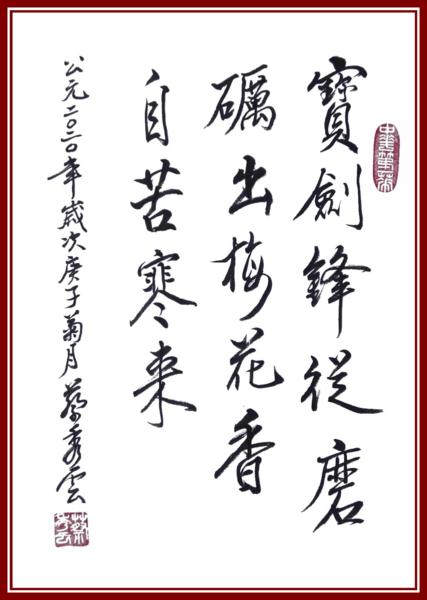 寶劍鋒從磨
礪出梅花香
自苦寒來
公元二〇二〇年歲次庚子菊月 蔡秀雲